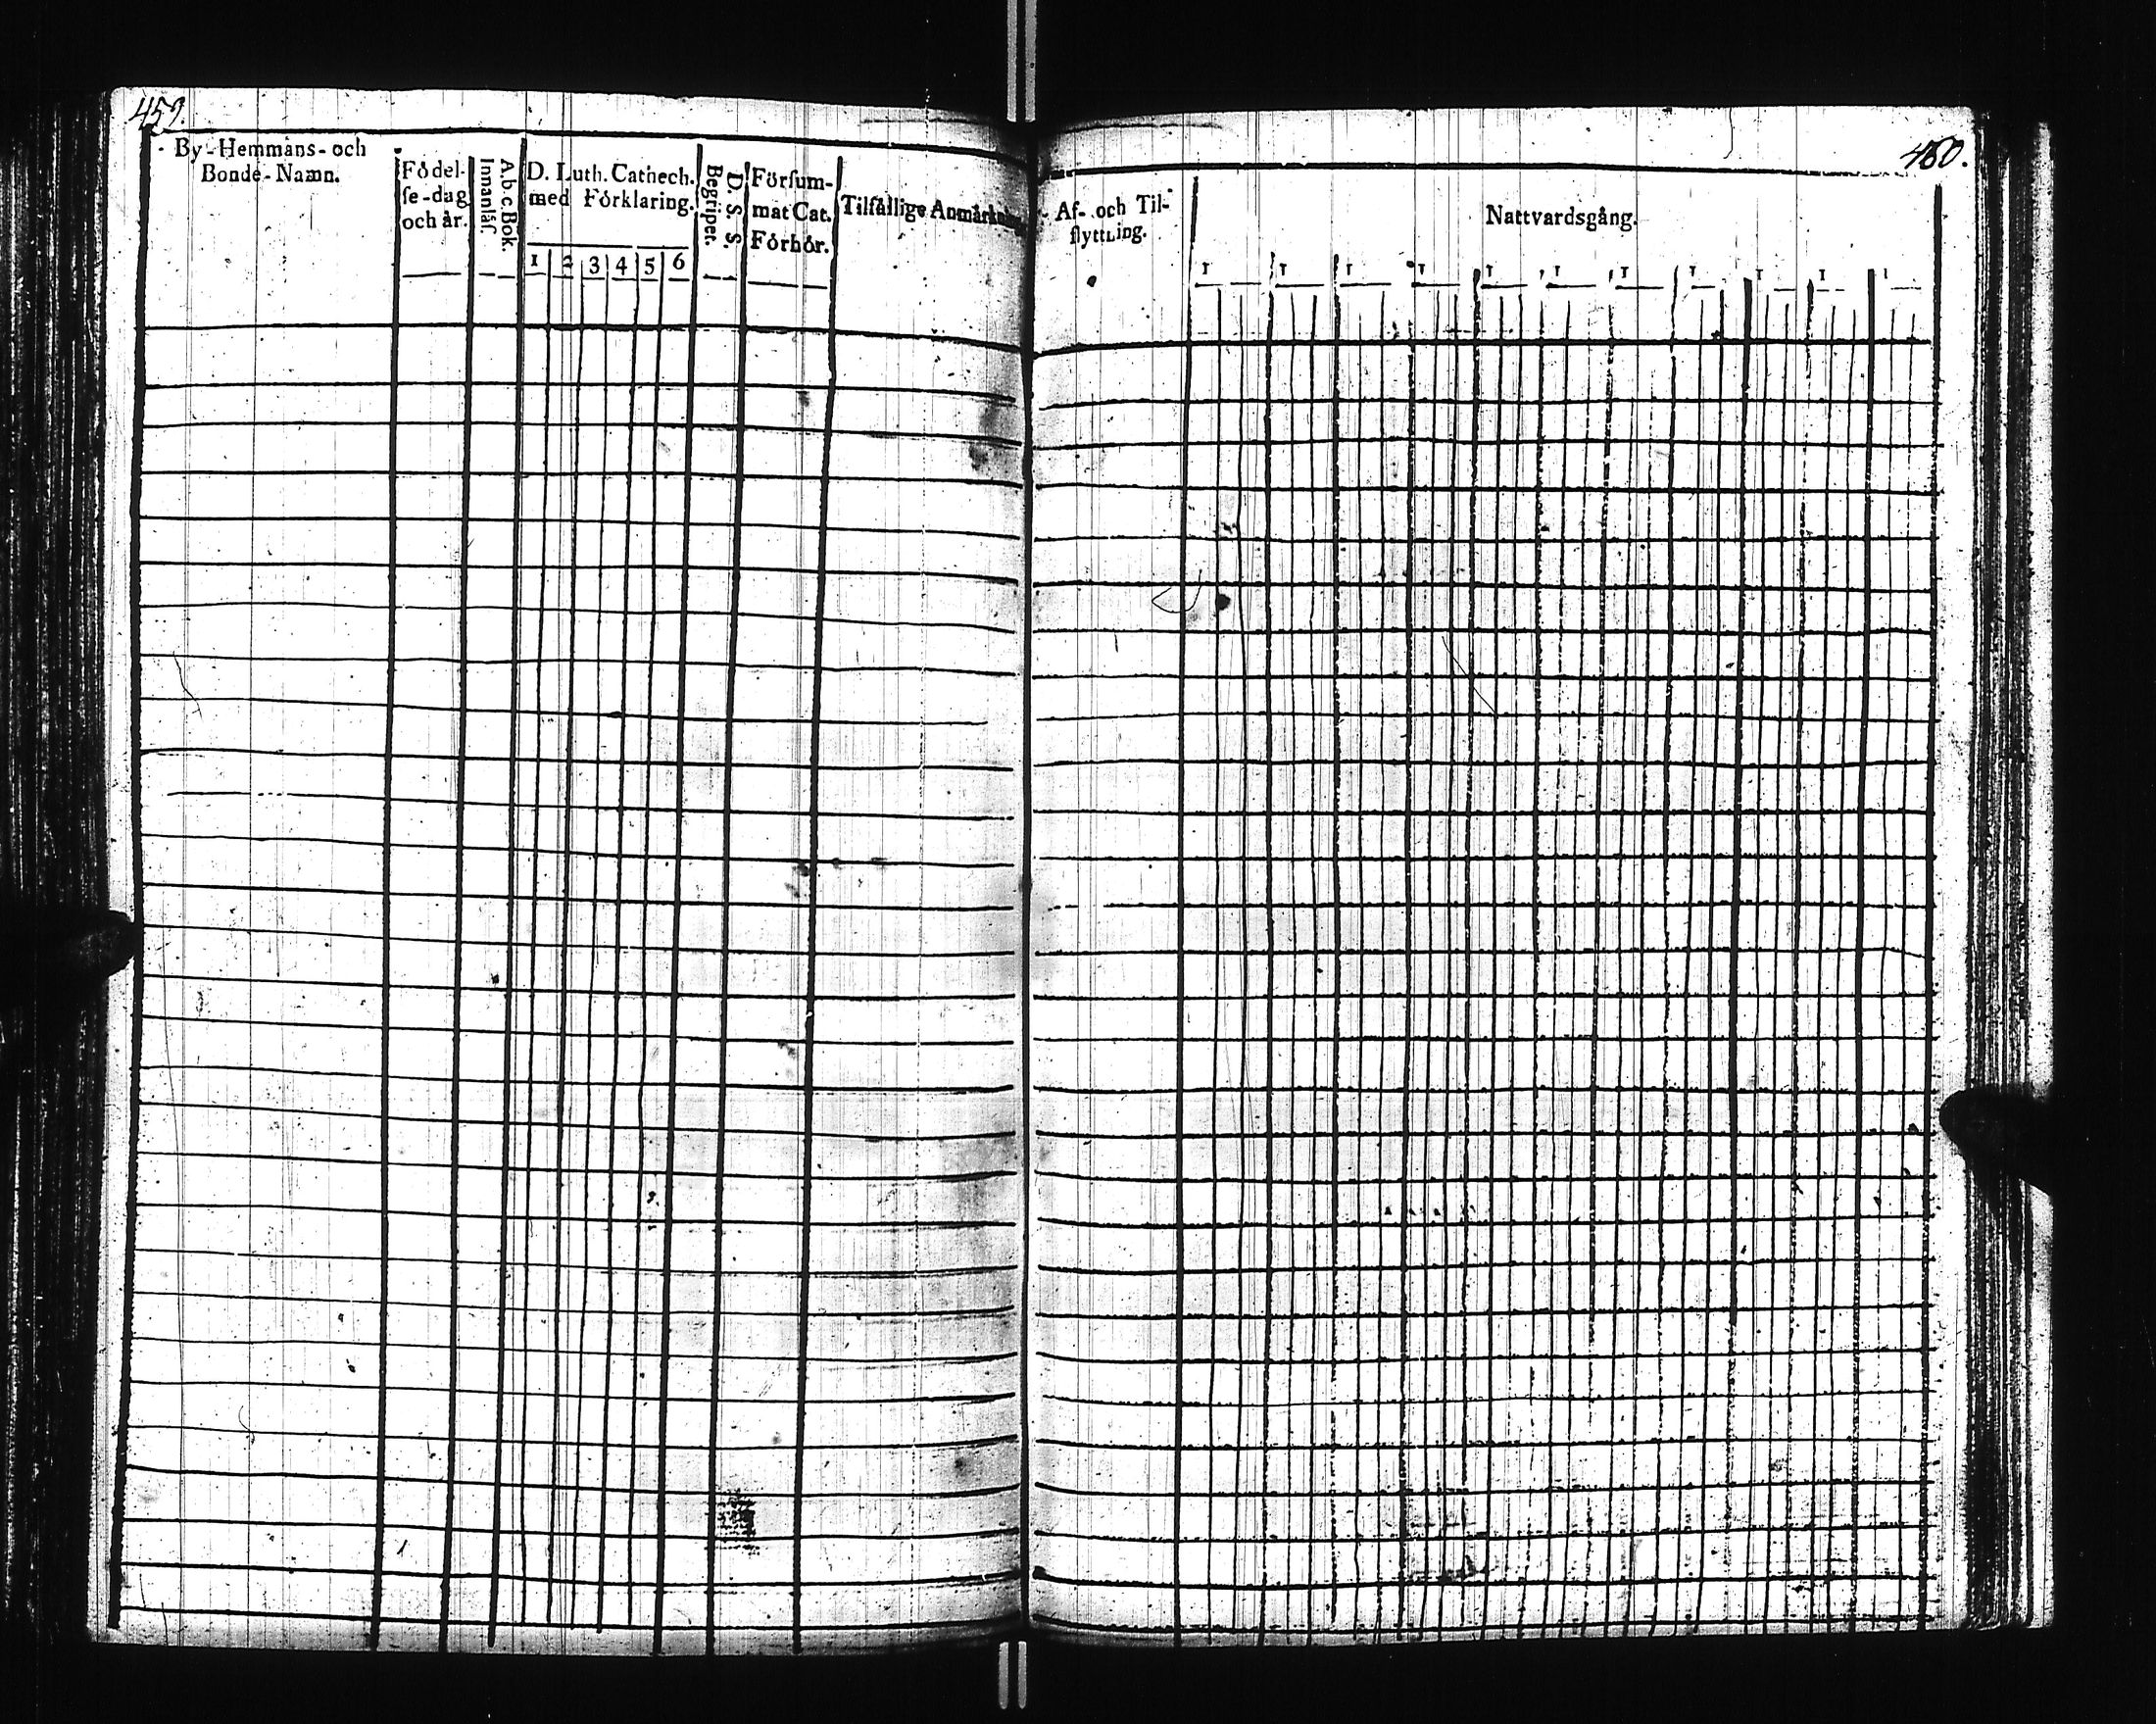 459.
By-Hemmans- och
Bonde-Namn.
Födel-
ſe-dag
och år.
Innanläſ.
A.b.c.Bok.
D. Luth. Cathech.
med Förklaring.
1 2 3 4 5 6
Begriper.
D. S. S.
Förſum-
mat Cat.
Förhör.
Tilfällige Anmärkning.
460.
Af- och Til-
flyttning.
Nattvardsgång.
1 1 1 1 1 1 1 1 1 1 1